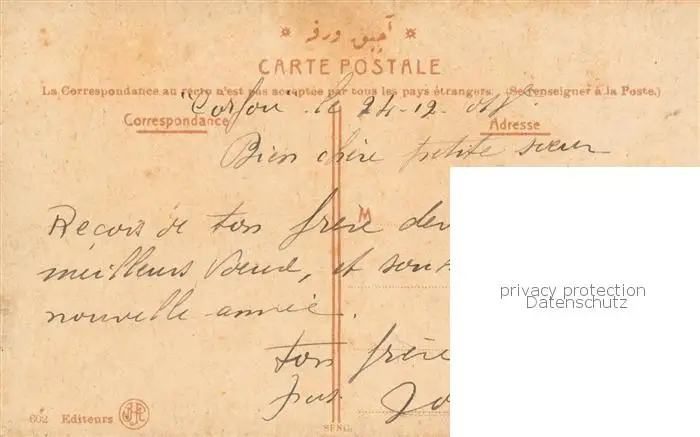 آچيق ورقه
CARTE POSTALE
La Correspondance au recto n'est pas acceptée par tous les pays étrangers. (Se renseigner à la Poste.)
"Corfou" le 24-12
Correspondance
Adresse
Bien chère petite sœur
Reçois de ton frère
M
meilleurs vœux, et
nouvelle année.
ton frère
602 Editeurs
privacy protection
Datenschutz